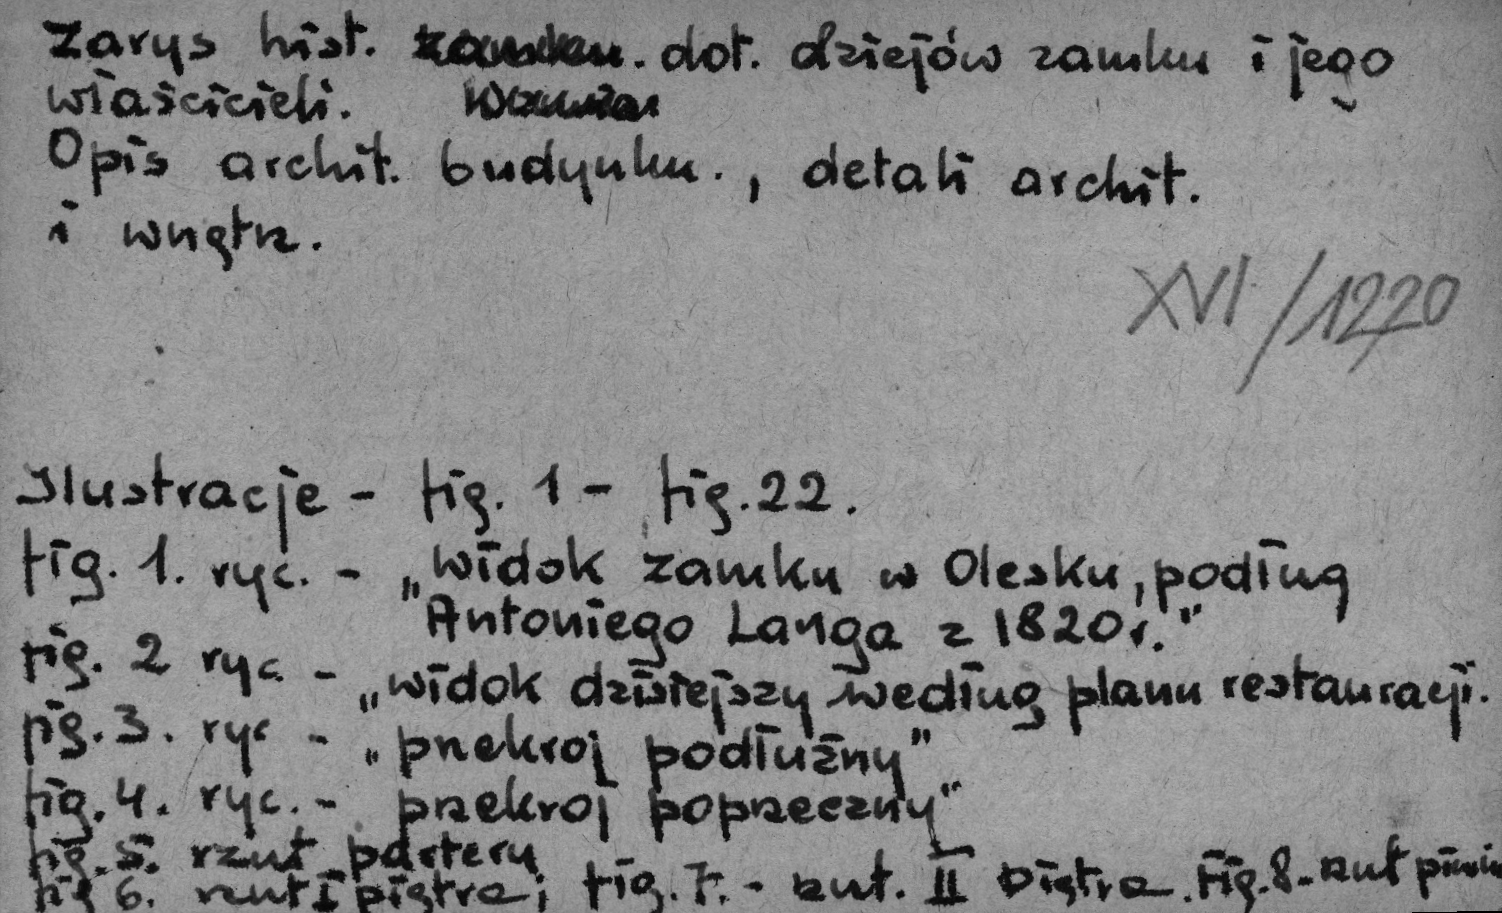 Zarys hist. zamku. dot. dziejów zamku i jego
właścicieli.
Opis archit. budynku., detali archit.
i wnętrz.
XVI/1220
Ilustracje - fig. 1 - fig. 22.
fig. 1. ryc. - „widok zamku w Olesku, podług
Antoniego Langa z 1820 r."
fig. 2 ryc - „widok dzisiejszy według planu restauracji.
fig. 3. ryc - „przekroj podłużny"
fig. 4. ryc. - przekroj poprzeczny"
fig. 5. rzut parteru
fig 6. rzut I piętra; fig. 7. - rzut. II piętra. fig. 8. rzut